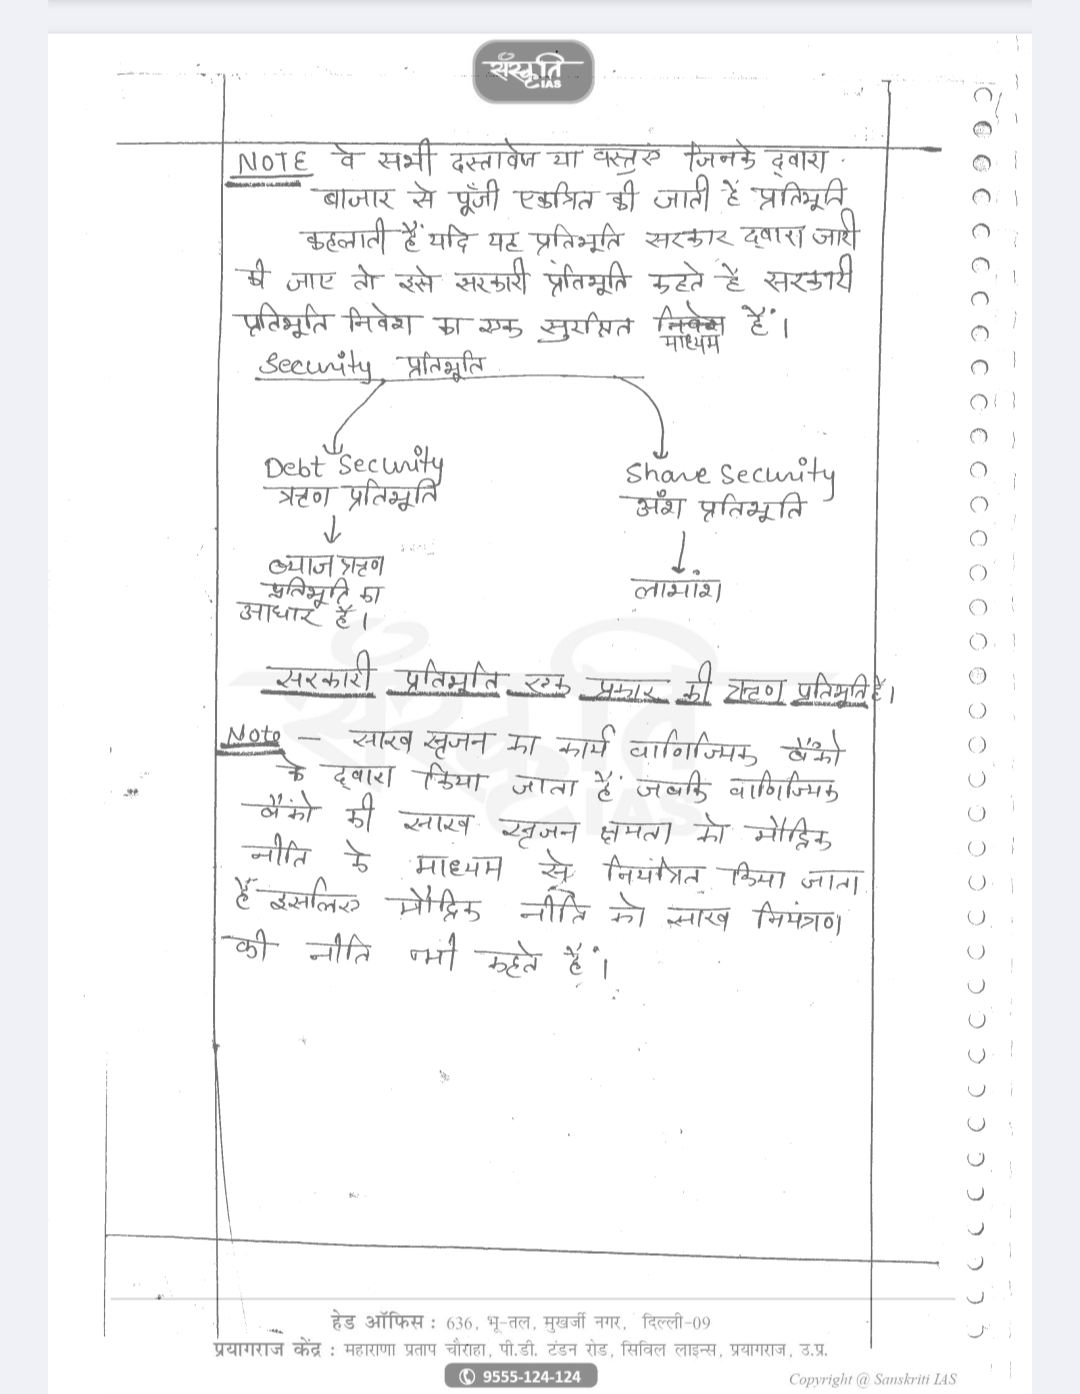 संस्कृति
IAS
NOTE वे सभी दस्तावेज या वस्तुएं जिनके द्वारा
बाजार से पूँजी एकत्रित की जाती हैं प्रतिभूति
कहलाती हैं यदि यह प्रतिभूति सरकार द्वारा जारी
की जाए तो इसे सरकारी प्रतिभूति कहते है सरकारी
प्रतिभूति निवेश का एक सुरक्षित निवेश हैं।
माध्यम
Security प्रतिभूति
Debt Security
ऋण प्रतिभूति
ब्याज ऋण
प्रतिभूति का
आधार है।
Share Security
अंश प्रतिभूति
लाभांश
सरकारी प्रतिभूति एक प्रकार की ऋण प्रतिभूति है।
Note - साख सृजन का कार्य वाणिज्यिक बैंको
के द्वारा किया जाता हैं जबकि वाणिज्यिक
बैंको की साख सृजन क्षमता को मौद्रिक
नीति के माध्यम से नियंत्रित किया जाता
हैं इसलिए मौद्रिक नीति को साख नियंत्रण
की नीति भी कहते हैं।
संस्कृति
IAS
हेड ऑफिस : 636, भू-तल, मुखर्जी नगर, दिल्ली-09
प्रयागराज केंद्र : महाराणा प्रताप चौराहा, पी.डी. टंडन रोड, सिविल लाइन्स, प्रयागराज, उ.प्र.
9555-124-124
Copyright @ Sanskriti IAS